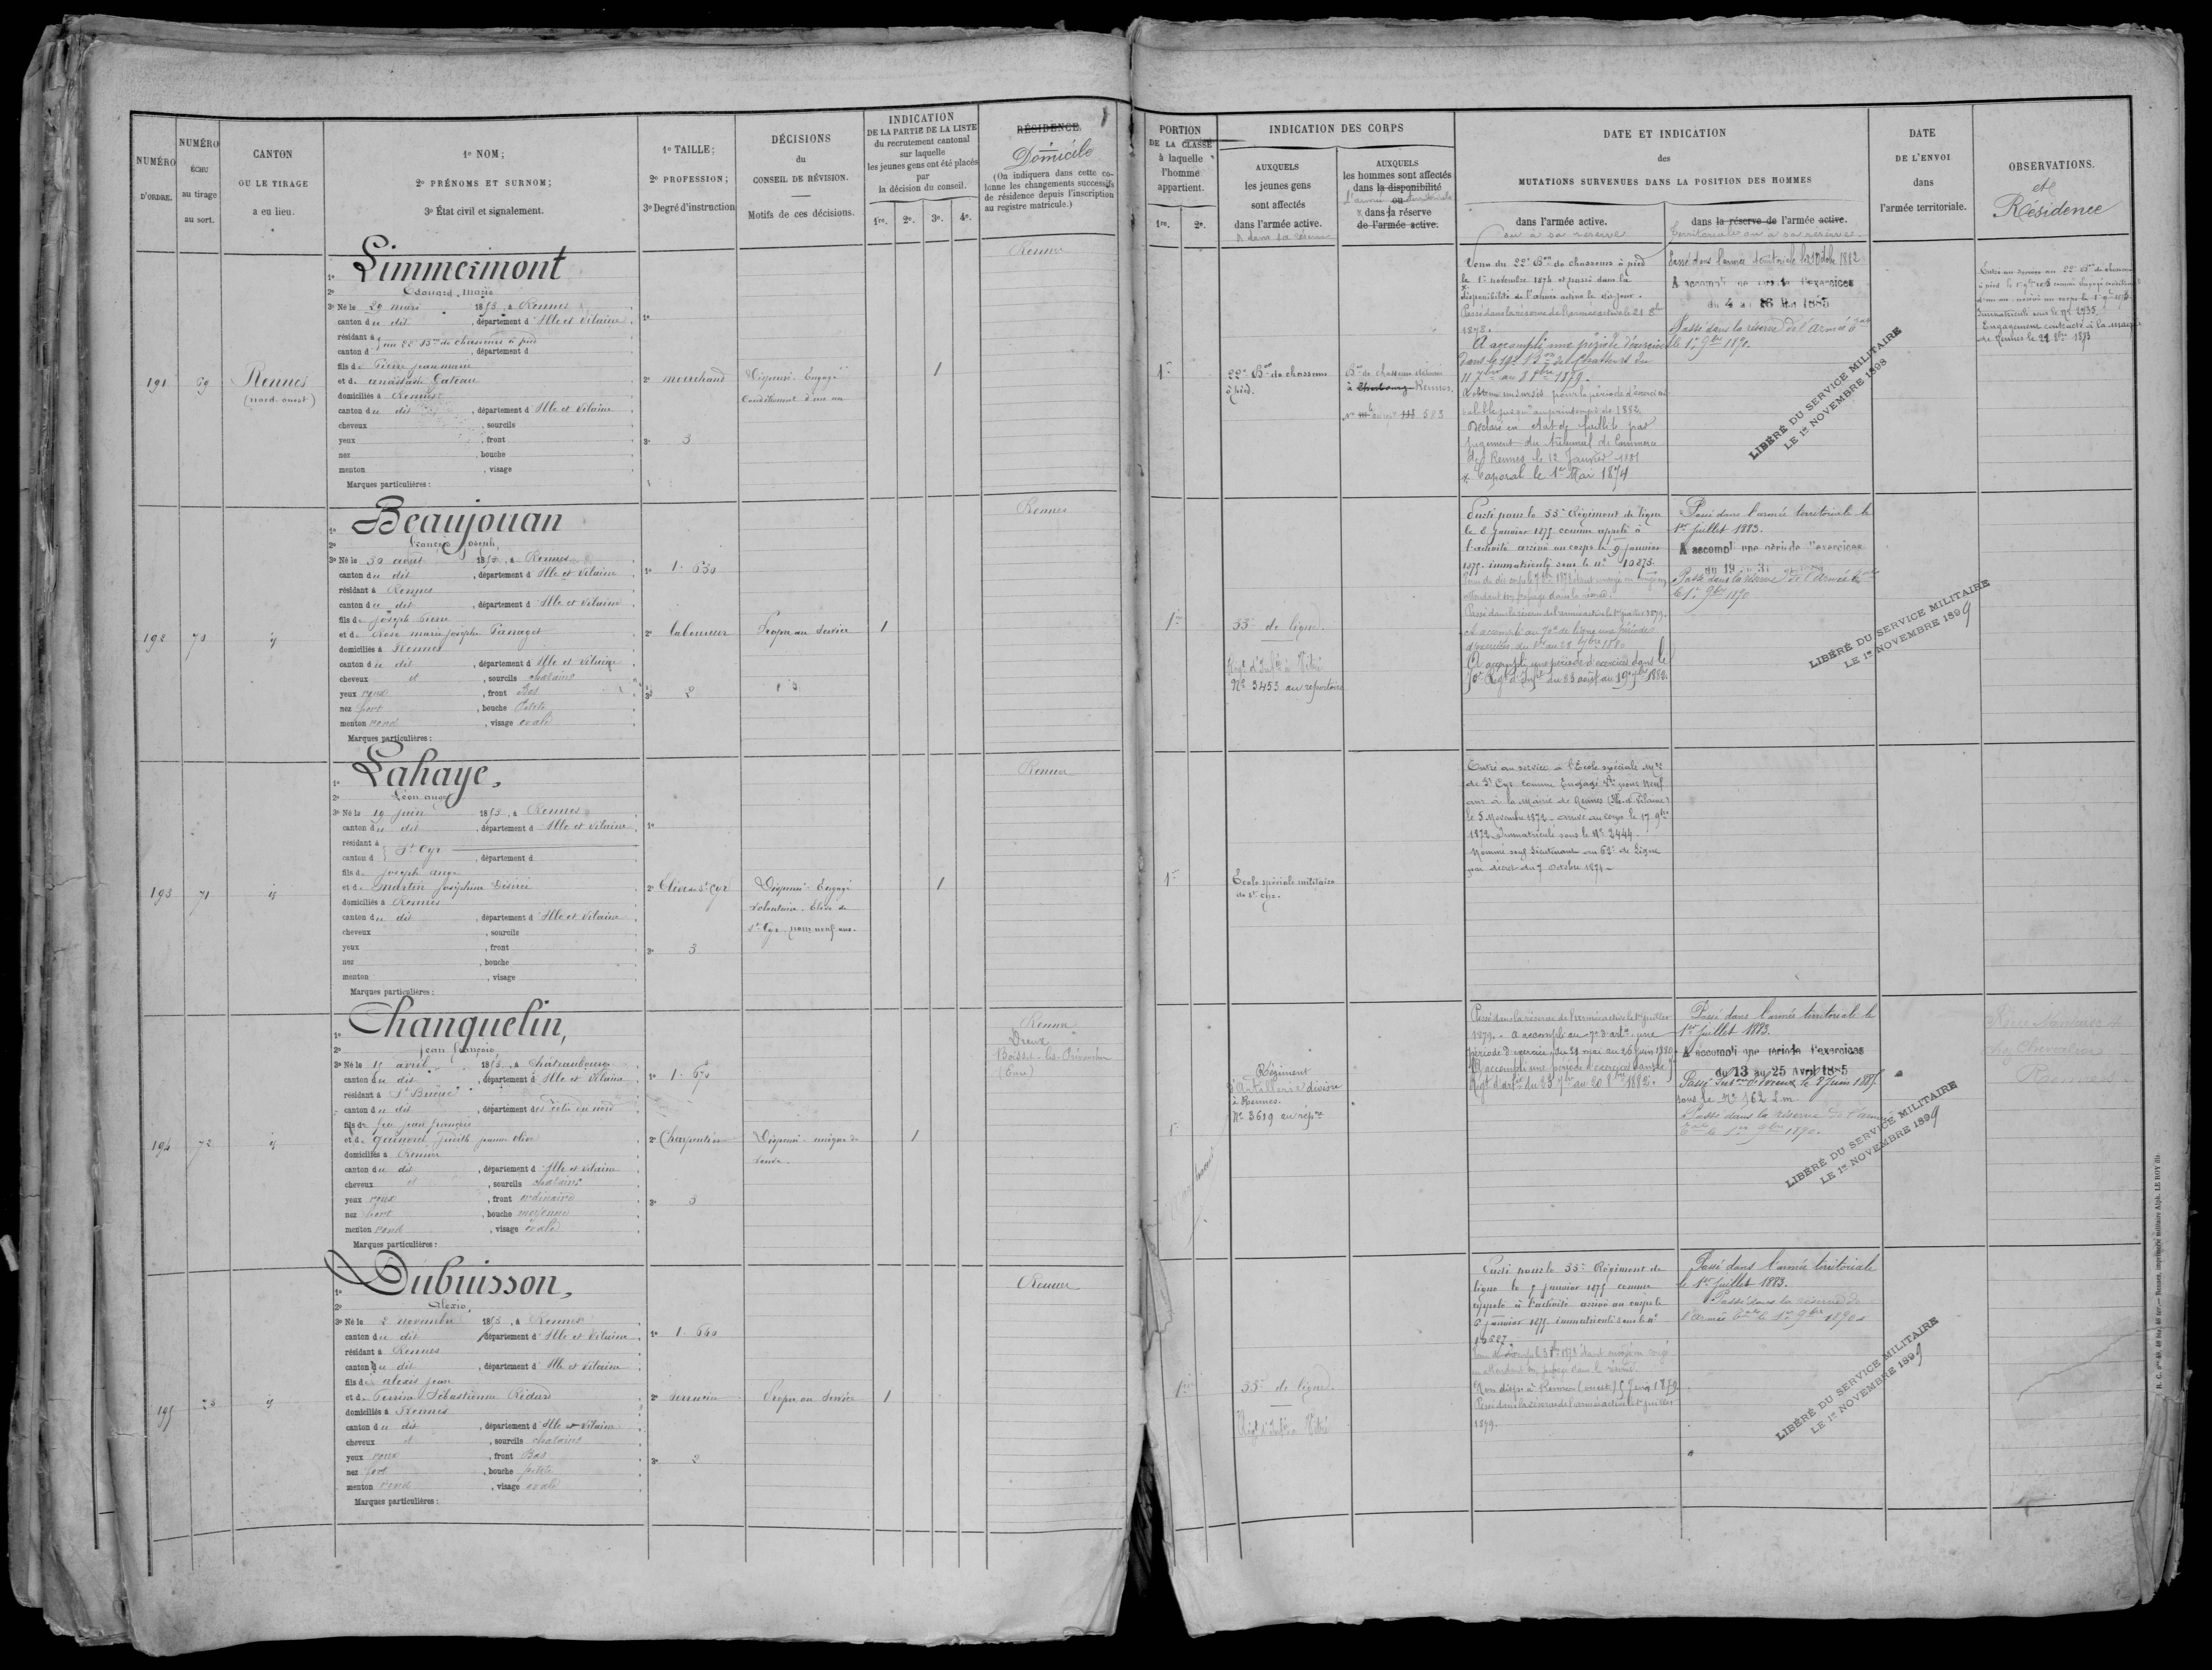 NUMÉRO D'ORDRE.
NUMÉRO ÉCHU au tirage au sort.
CANTON OU LE TIRAGE a eu lieu.
1º NOM;
2º PRÉNOMS ET SURNOM;
3º État civil et signalement.
1º TAILLE;
2º PROFESSION;
3º Degré d'instruction
DÉCISIONS du CONSEIL DE RÉVISION.
Motifs de ces décisions.
INDICATION
DE LA PARTIE DE LA LISTE
du recrutement cantonal
sur laquelle
les jeunes gens ont été placés
par
la décision du conseil.
1re. 2e. 3e. 4e.
RÉSIDENCE
Domicile
(On indiquera dans cette colonne les changements successifs de résidence depuis l'inscription au registre matricule.)
PORTION DE LA CLASSE à laquelle l'homme appartient.
1re. 2e.
INDICATION DES CORPS
AUXQUELS les jeunes gens sont affectés dans l'armée active.
& dans sa réserve
AUXQUELS les hommes sont affectés dans la disponibilité
ou
dans la réserve de l'armée active.
DATE ET INDICATION
des
MUTATIONS SURVENUES DANS LA POSITION DES HOMMES
dans l'armée active.
ou à sa réserve
dans la réserve de l'armée active.
territoriale ou à sa réserve.
DATE DE L'ENVOI dans l'armée territoriale.
OBSERVATIONS.
et
Résidence
191
69
Rennes
(nord-ouest)
Limmermont
Edouard, Marie
3º Né le 29 mars 1853, à Rennes
canton du dit, département d Ille et Vilaine
résidant à au 22e Bon de chasseurs à pied
canton d , département d
fils de Pierre jean marie
et de anastasie Gateau
domiciliés à Rennes
canton du dit, département d Ille et Vilaine
cheveux , sourcils
yeux , front
nez , bouche
menton , visage
Marques particulières :
2º marchand
3º 3
Dispensé. Engagé
Conditionnel d'un an
1
Rennes
1re
22e Bon de chasseurs
à pied.
Bon de chasseurs
à Cherbourg Rennes.
583
Venu du 22e Bon de chasseurs à pied
le 1er novembre 1874 et passé dans la
disponibilité de l'armée active le dit jour.
Passé dans la réserve de l'armée active le 21 8bre
1878.
A accompli une période d'exercices
dans le 19e Bon de chasseurs du
11 7bre au 8 8bre 1879.
A obtenu un sursis pour la période d'exercices
valable jusqu'au printemps de 1882.
Déclaré en état de faillite par
jugement du tribunal de Commerce
de Rennes le 12 Janvier 1881
x Caporal le 1er Mai 1874
Passé dans l'armée territoriale le 21 Octobre 1882
A accompli une période d'exercices
du 4 au 16 Mai 1885
Passé dans la réserve de l'armée tale
le 1er 9bre 1890.
LIBÉRÉ DU SERVICE MILITAIRE
LE 1er NOVEMBRE 1898
Entré au service au 22e Bon de chasseurs
à pied le 1er 9bre 1873 comme engagé conditionnel
d'un an. arrivé au corps le 1er 9bre 1873.
Immatriculé sous le Nº 2935.
Engagement contracté à la mairie
de Rennes le 29 8bre 1873
192
70
id
Beaujouan
françois joseph
3º Né le 30 avril 1853, à Rennes
canton du dit, département d Ille et Vilaine
résidant à Rennes
canton du dit, département d Ille et Vilaine
fils de joseph Pierre
et de Rose marie josèphe Panaget
domiciliés à Rennes
canton du dit, département d Ille et Vilaine
cheveux et , sourcils chatains
yeux roux , front Bas
nez fort , bouche Petite
menton rond , visage ovale
Marques particulières :
1º 1. 630
2º laboureur
3º 2
Propre au Service
1
Rennes
1re
33e de ligne.
Régt d'Infie à Vitré
Nº 3453 au répertoire
Parti pour le 33e Régiment de ligne
le 8 janvier 1875 comme appelé à
l'activité arrivé au corps le 9 janvier
1875. immatriculé sous le nº 10273.
attendant son passage dans la réserve.
Passé dans la réserve de l'armée active le 1er juillet 1879.
A accompli au 70e de ligne une période
d'exercices du 1er au 28 7bre 1880
A accompli une période d'exercices dans le
70e Régt d'Infie du 23 août au 19 7bre 1882.
Passé dans l'armée territoriale le
1er juillet 1883.
A accompli une période d'exercices
du 19 au 31
Passé dans la réserve de l'Armée tale
le 1er 9bre 1890
LIBÉRÉ DU SERVICE MILITAIRE
LE 1er NOVEMBRE 1899
193
71
id
Lahaye,
Léon ange
3º Né le 19 juin 1853, à Rennes
canton du dit, département d Ille et Vilaine
résidant à St Cyr
canton d , département d
fils de joseph ange
et de martin joséphine Désirée
domiciliés à Rennes
canton du dit, département d Ille et Vilaine
cheveux , sourcils
yeux , front
nez , bouche
menton , visage
Marques particulières :
2º Elève de St Cyr
3º 3
Dispensé. Engagé
volontaire. Elève de
St Cyr pour neuf ans.
1
Rennes
1re
Ecole spéciale militaire
de St Cyr.
Entré au service à l'Ecole spéciale Mre
de St Cyr comme Engagé Vre pour Neuf
ans à la Mairie de Rennes (Ille et Vilaine)
le 5 Novembre 1872 - arrivé au corps le 17 9bre
1872. Immatriculé sous le Nº 2444.
Nommé sous Lieutenant au 62e de Ligne
par décret du 7 Octobre 1874.
194
72
id
Chanquelin,
jean françois
3º Né le 15 avril 1853, à Châteaubourg
canton du dit, département d Ille et Vilaine
résidant à St Brieuc
canton du dit, département des Côtes du nord
fils de feu jean françois
et de judith jeanne olive
domiciliés à Rennes
canton du dit, département d Ille et Vilaine
cheveux et , sourcils chatains
yeux roux , front ordinaire
nez fort , bouche moyenne
menton rond , visage ovale
Marques particulières :
1º 1. 670
2º Charpentier
3º 3
Dispensé. unique de
veuve.
1
Rennes
Dreux
(Eure)
1re
Régiment
d'Artillerie divisre
à Rennes.
Nº 3619 au répre
Passé dans la réserve de l'armée active le 1er juillet
1879. A accompli au 7e d'artie une
période d'exercices du 29 mai au 25 juin 1880.
A accompli une période d'exercices dans le 7e
Régt d'artie du 23 7bre au 20 8bre 1882.
Passé dans l'armée territoriale le
1er juillet 1883.
A accompli une période d'exercices
du 13 au 25 Avril 1885
sous le Nº 162 L.m.
Passé dans la réserve de l'armée
tale le 1er 9bre 1890.
LIBÉRÉ DU SERVICE MILITAIRE
LE 1er NOVEMBRE 1899
195
73
id
Dubuisson,
Alexis,
3º Né le 2 novembre 1853, à Rennes
canton du dit, département d Ille et Vilaine
résidant à Rennes
canton du dit, département d Ille et Vilaine
fils de alexis jean
et de Perrine Sébastienne Rédard
domiciliés à Rennes
canton du dit, département d Ille et Vilaine
cheveux et , sourcils chatains
yeux roux , front Bas
nez fort , bouche petite
menton rond , visage ovale
Marques particulières :
1º 1. 640
2º serrurier
3º 2
Propre au Service
1
Rennes
1re
33e de ligne.
Régt d'Infie à Vitré
Parti pour le 33e Régiment de
ligne le 5 janvier 1875 comme
appelé à l'activité arrivé au corps le
6 janvier 1875 immatriculé sous le nº
attendant son passage dans la réserve.
Passé dans la réserve de l'armée active le 1er juillet
1879.
Passé dans l'armée territoriale
le 1er juillet 1883.
Passé dans la réserve de
l'armée tale le 1er 9bre 1890
LIBÉRÉ DU SERVICE MILITAIRE
LE 1er NOVEMBRE 1899